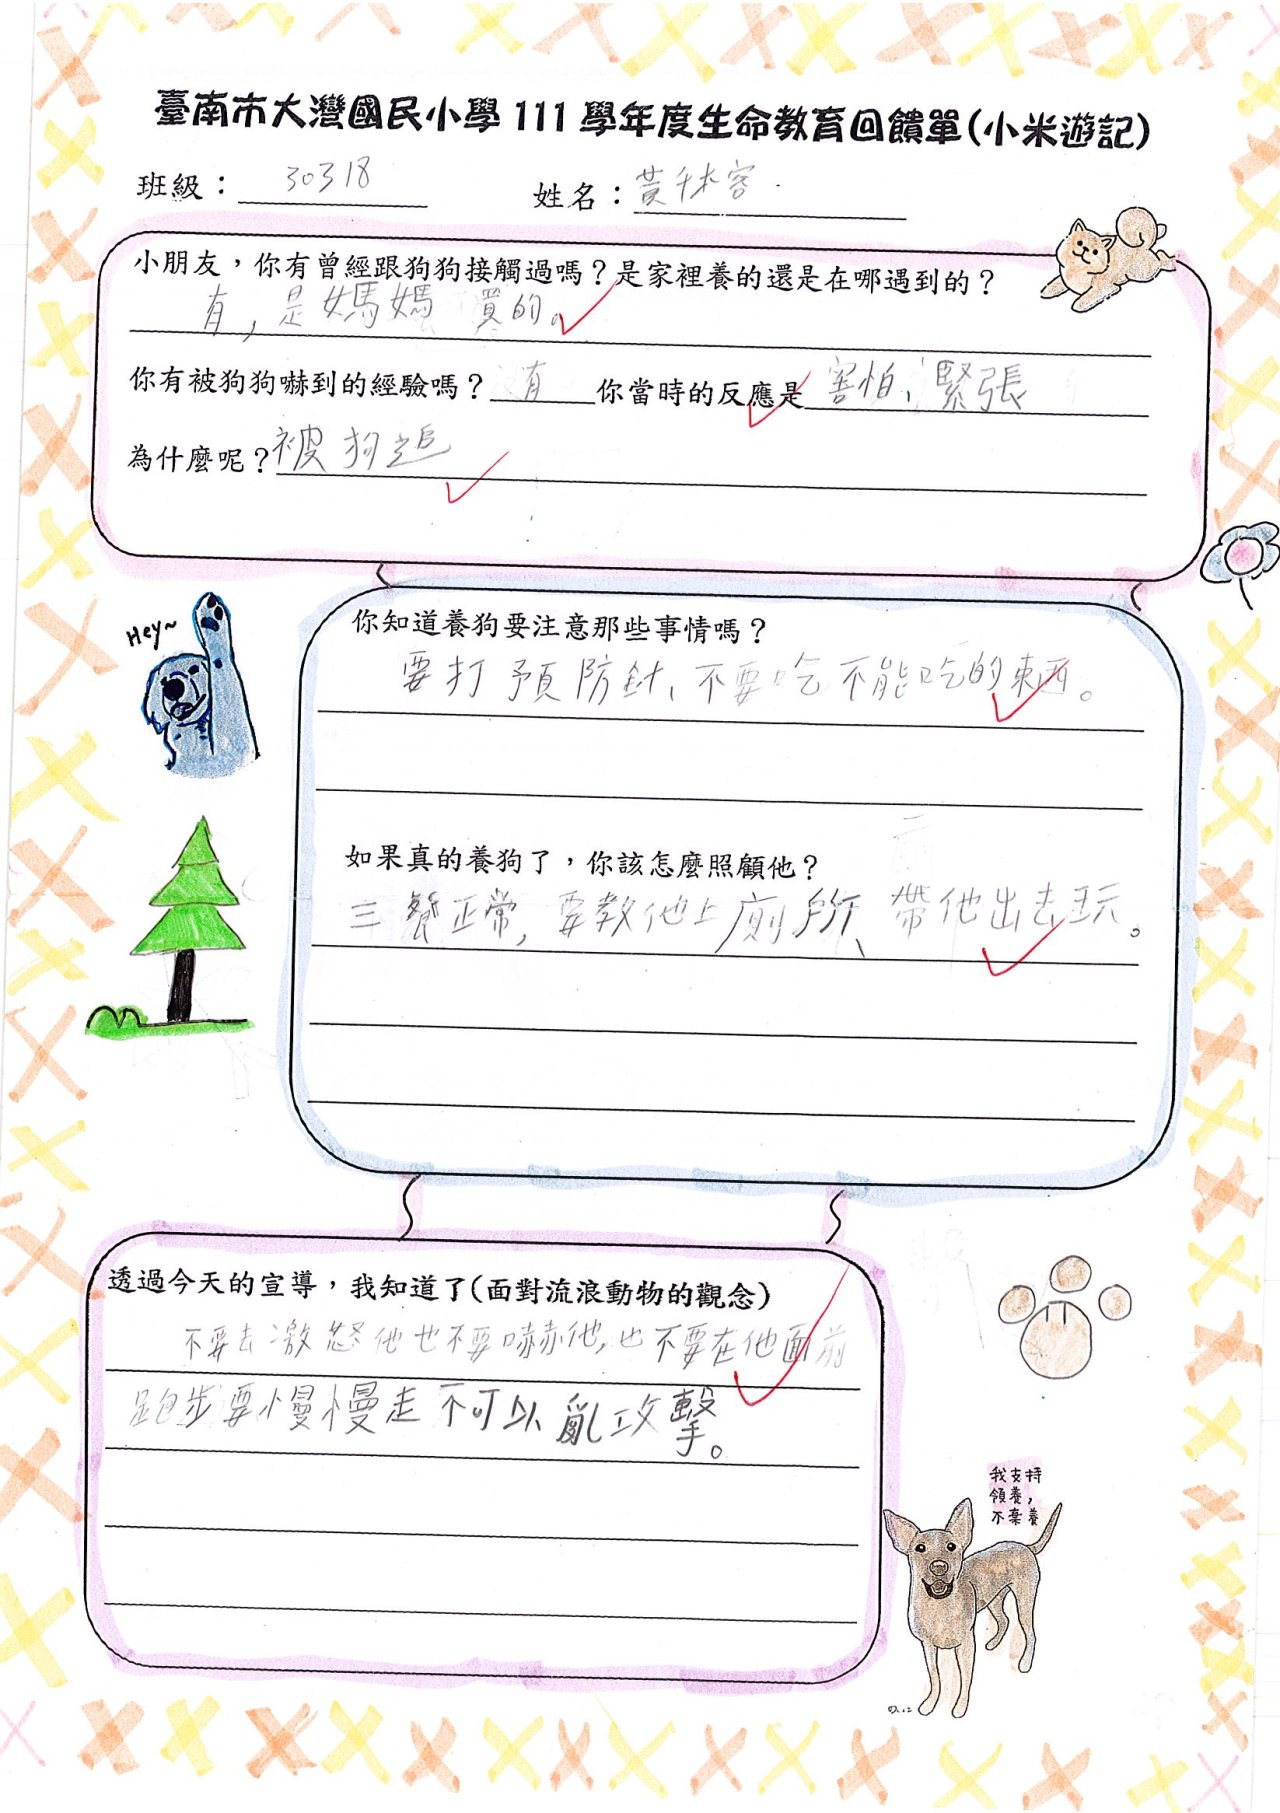 臺南市大灣國民小學 111 學年度生命教育回饋單(小米遊記)
班級：30318 姓名：黃
小朋友，你有曾經跟狗狗接觸過嗎？是家裡養的還是在哪遇到的？
有，是媽媽 買的。
你有被狗狗嚇到的經驗嗎？有 你當時的反應是害怕、緊張
為什麼呢？被狗追
Hey~
你知道養狗要注意那些事情嗎？
要打預防針、不要吃不能吃的東西。
如果真的養狗了，你該怎麼照顧他？
三餐正常，要教他上廁所、帶他出去玩。
透過今天的宣導，我知道了(面對流浪動物的觀念)
不要去激怒他也不要嚇他，也不要在他面前
跑步要慢慢走不可以亂攻擊。
我支持
領養，
不棄養